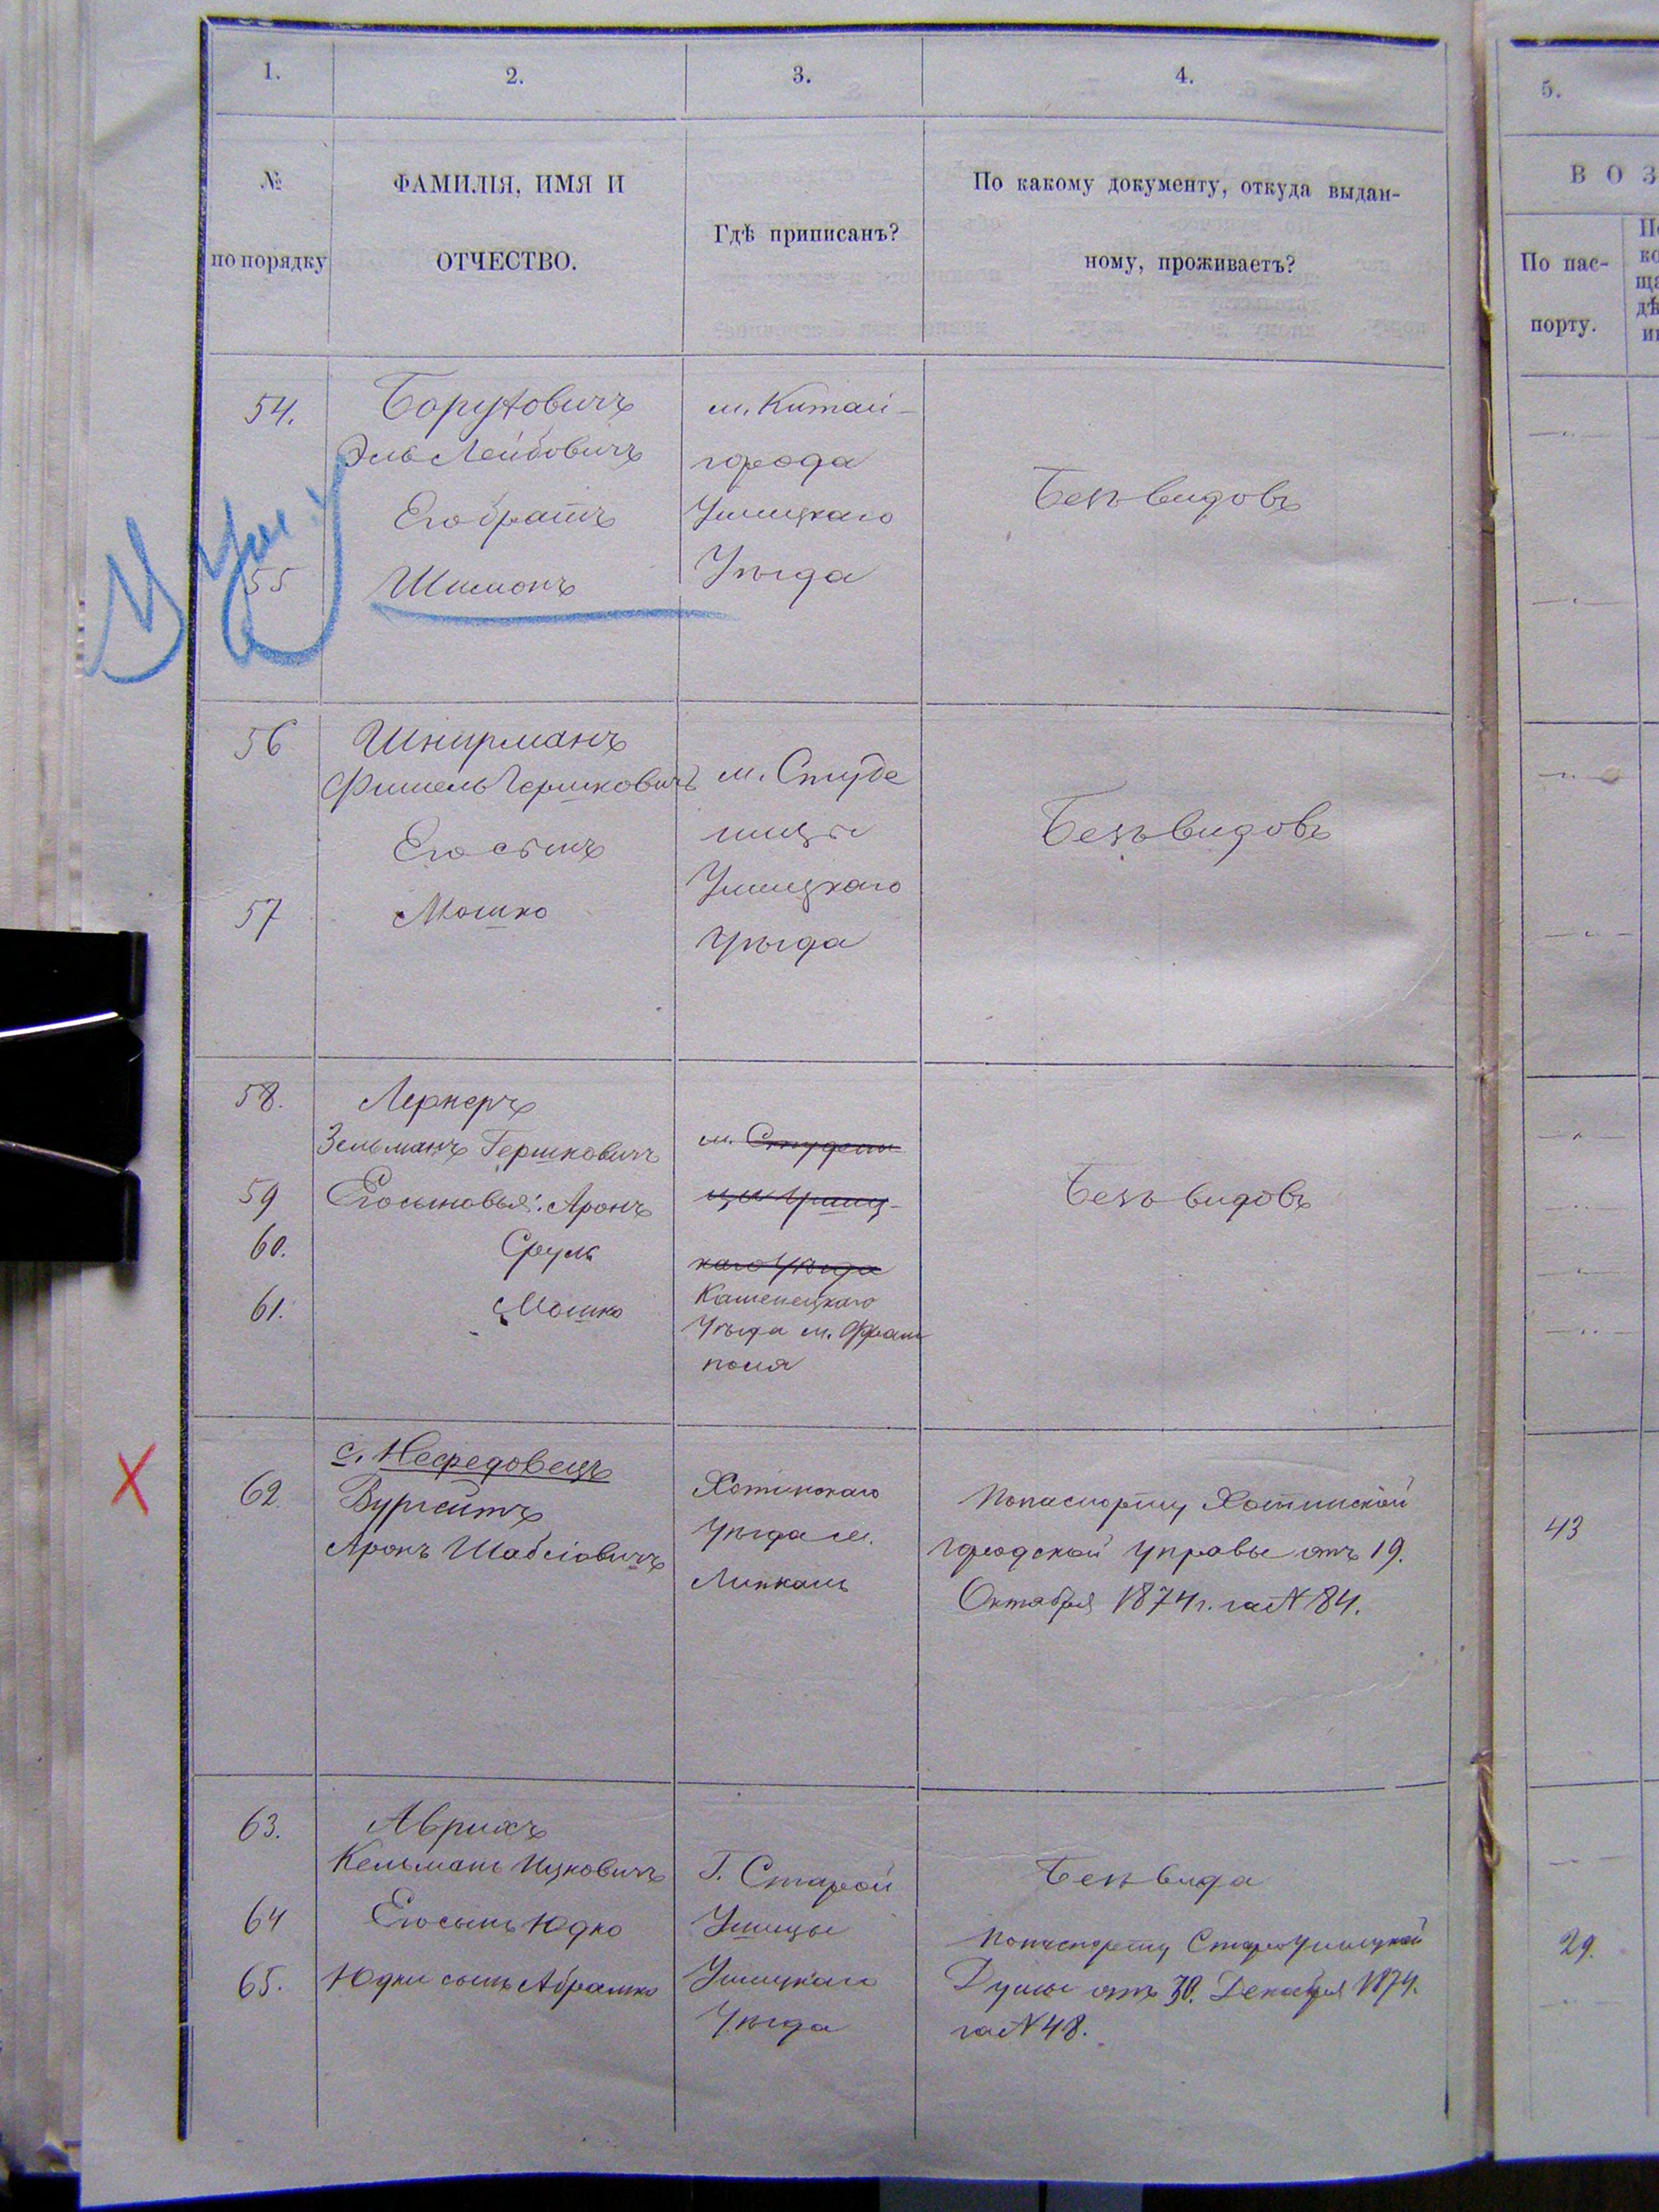 1.
2.
3.
4.
5.
№
по порядку
ФАМИЛІЯ, ИМЯ И
ОТЧЕСТВО.
Гдѣ приписанъ?
По какому документу, откуда выдан-
ному, проживаетъ?
В О З
По пас-
порту.
54.
Борухович
Эль Лейбовичъ
Его братъ
55
Шимонъ
м. Китай-
города
Ушицкаго
Уѣзда
Безъ видовъ
56
Шнирманъ
Фишель Гершковичъ
Его сынъ
57
Мошко
м. Студе
ницы
Ушицкаго
Уѣзда
Безъ видовъ
58.
Лернеръ
Зельманъ Гершковичъ
59
Его сыновья: Аронъ
60.
Сруль
61.
Мошко
м. Студени
цы Ушиц-
каго Уѣзда
Каменецкаго
Уѣзда м. Фрам
поля
Безъ видовъ
с. Нефедовецъ
62.
Вургейтъ
Аронъ Шабсіовичъ
Хотинскаго
Уѣзда м.
Липканъ
По паспорту Хотинской
городской управы отъ 19.
Октября 1874 г. за N 84.
43
63.
Аврихъ
Кельманъ Ицковичъ
64
Его сынъ Юдко
65.
Юдки сынъ Абрамко
Г. Старой
Ушицы
Ушицкаго
Уѣзда
Безъ вида
По паспорту Староушицкой
Думы отъ 30. Декабря 1874.
за N 48.
29.